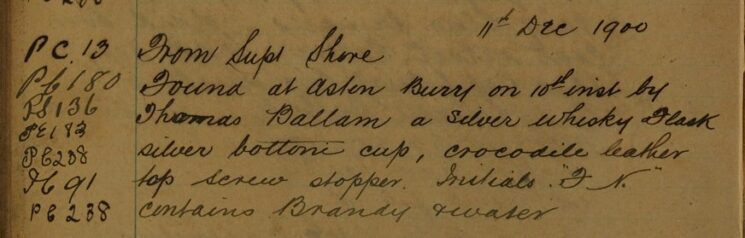 11th Dec 1900
P.C. 13 From Supt Shore
PC 180 Found at Aston Burry on 10th inst by
PS 136 Thomas Ballam a silver whisky Flask
PC 183
PC 238 silver bottom cup, crocodile leather
PC 91 top screw stopper. Initials "F N."
PC 238 contains Brandy & water